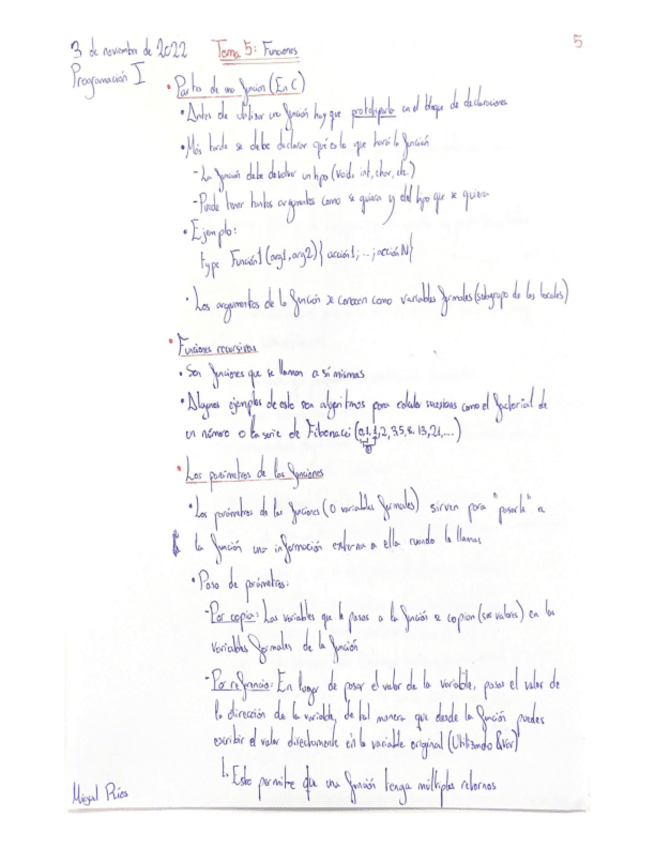 3 de noviembre de 2022 Tema 5: Funciones 5
Programación I
• Partes de una función (En C)
• Antes de utilizar una función hay que prototiparla en el bloque de declaraciones
• Más tarde se debe declarar qué es lo que hará la función
- La función debe devolver un tipo (void, int, char, etc.)
- Puede tener tantos argumentos como se quiera y del tipo que se quiera
• Ejemplo:
type Función1(arg1, arg2){ acción1; ...; acciónN}
• Los argumentos de la función se conocen como variables formales (subgrupo de las locales)
• Funciones recursivas
• Son funciones que se llaman a sí mismas
• Algunos ejemplos de esto son algoritmos para calcular sucesiones como el factorial de
un número o la serie de Fibonacci (0,1,1,2,3,5,8,13,21,...)
• Los parámetros de las funciones
• Los parámetros de las funciones (O variables formales) sirven para "pasarle" a
la función una información externa a ella cuando la llamas
• Paso de parámetros:
- Por copia: Las variables que le pasas a la función se copian (sus valores) en las
variables formales de la función
- Por referencia: En lugar de pasar el valor de la variable, pasas el valor de
la dirección de la variable, de tal manera que desde la función puedes
escribir el valor directamente en la variable original (Utilizando &var)
↳ Esto permite que una función tenga múltiples retornos
Miguel Ríos